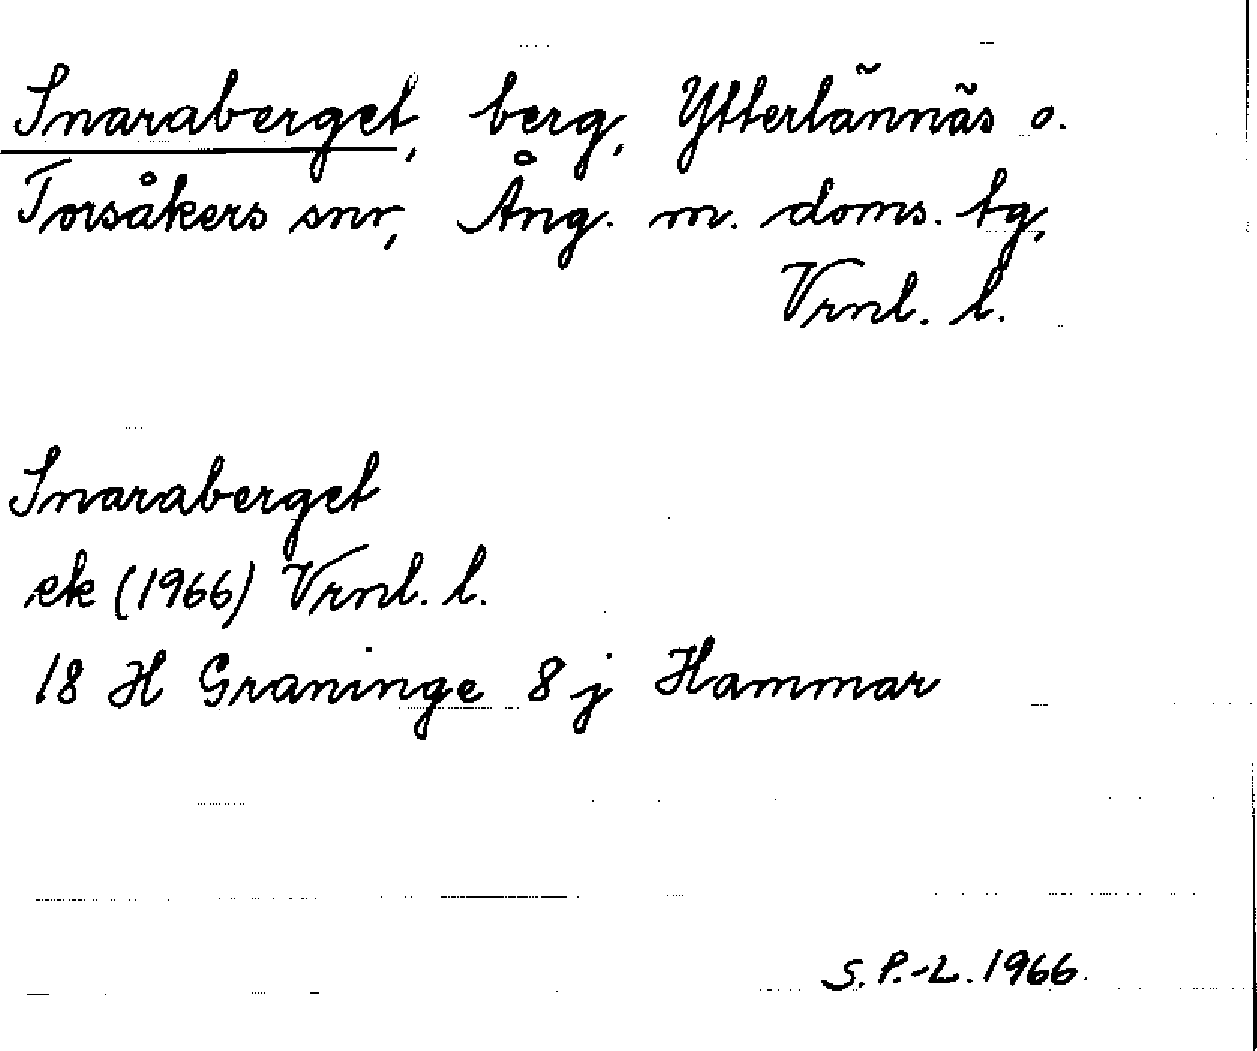 Snaraberget, berg, Ytterlännäs o.
Torsåkers snr, Ång. m. doms. tg,
Vrnl. l.
Snaraberget
ek (1966) Vrnl. l.
18 H Graninge 8 j Hammar
S. P.-L. 1966.